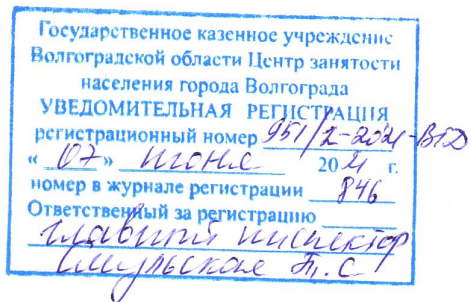 Государственное казенное учреждение
Волгоградской области Центр занятости
населения города Волгограда
УВЕДОМИТЕЛЬНАЯ РЕГИСТРАЦИЯ
регистрационный номер 951/2-2021-ВГД
« 07 » июня 2021 г.
номер в журнале регистрации 846
Ответственный за регистрацию
главный инспектор
Т.С